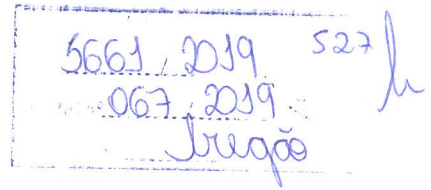 5661 / 2019 527
067 / 2019
Pregão